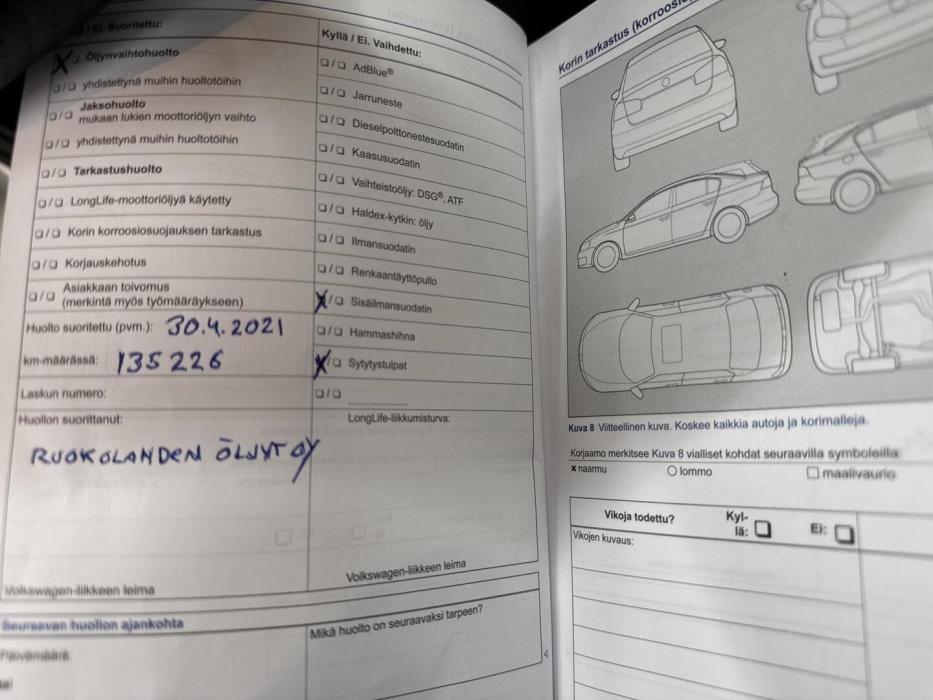 / Ei. Suoritettu:
Öljynvaihtohuolto
❑/❑ yhdistettynä muihin huoltotöihin
❑/❑ Jaksohuolto
mukaan lukien moottoriöljyn vaihto
❑/❑ yhdistettynä muihin huoltotöihin
❑/❑ Tarkastushuolto
❑/❑ LongLife-moottoriöljyä käytetty
❑/❑ Korin korroosiosuojauksen tarkastus
❑/❑ Korjauskehotus
❑/❑ Asiakkaan toivomus
(merkintä myös työmääräykseen)
Huolto suoritettu (pvm.): 30.4.2021
km-määrässä: 135 226
Laskun numero:
Huollon suorittanut:
RUOKOLAHDEN ÖLJYT OY
Volkswagen-liikkeen leima
Seuraavan huollon ajankohta
Päivämäärä:
Kyllä / Ei. Vaihdettu:
❑/❑ AdBlue®
❑/❑ Jarruneste
❑/❑ Dieselpolttonestesuodatin
❑/❑ Kaasusuodatin
❑/❑ Vaihteistoöljy: DSG®, ATF
❑/❑ Haldex-kytkin: öljy
❑/❑ Ilmansuodatin
❑/❑ Renkaantäyttöpullo
X/❑ Sisäilmansuodatin
❑/❑ Hammashihna
X/❑ Sytytystulpat
❑/❑ ....................
LongLife-liikkumisturva:
Volkswagen-liikkeen leima
Mikä huolto on seuraavaksi tarpeen?
4
Korin tarkastus (korroosio
Kuva 8 Viitteellinen kuva. Koskee kaikkia autoja ja korimalleja.
Korjaamo merkitsee Kuva 8 vialliset kohdat seuraavilla symboleilla:
x naarmu ○ lommo ☐ maalivaurio
Vikoja todettu? Kyl-
lä: ❑ Ei: ❑
Vikojen kuvaus: